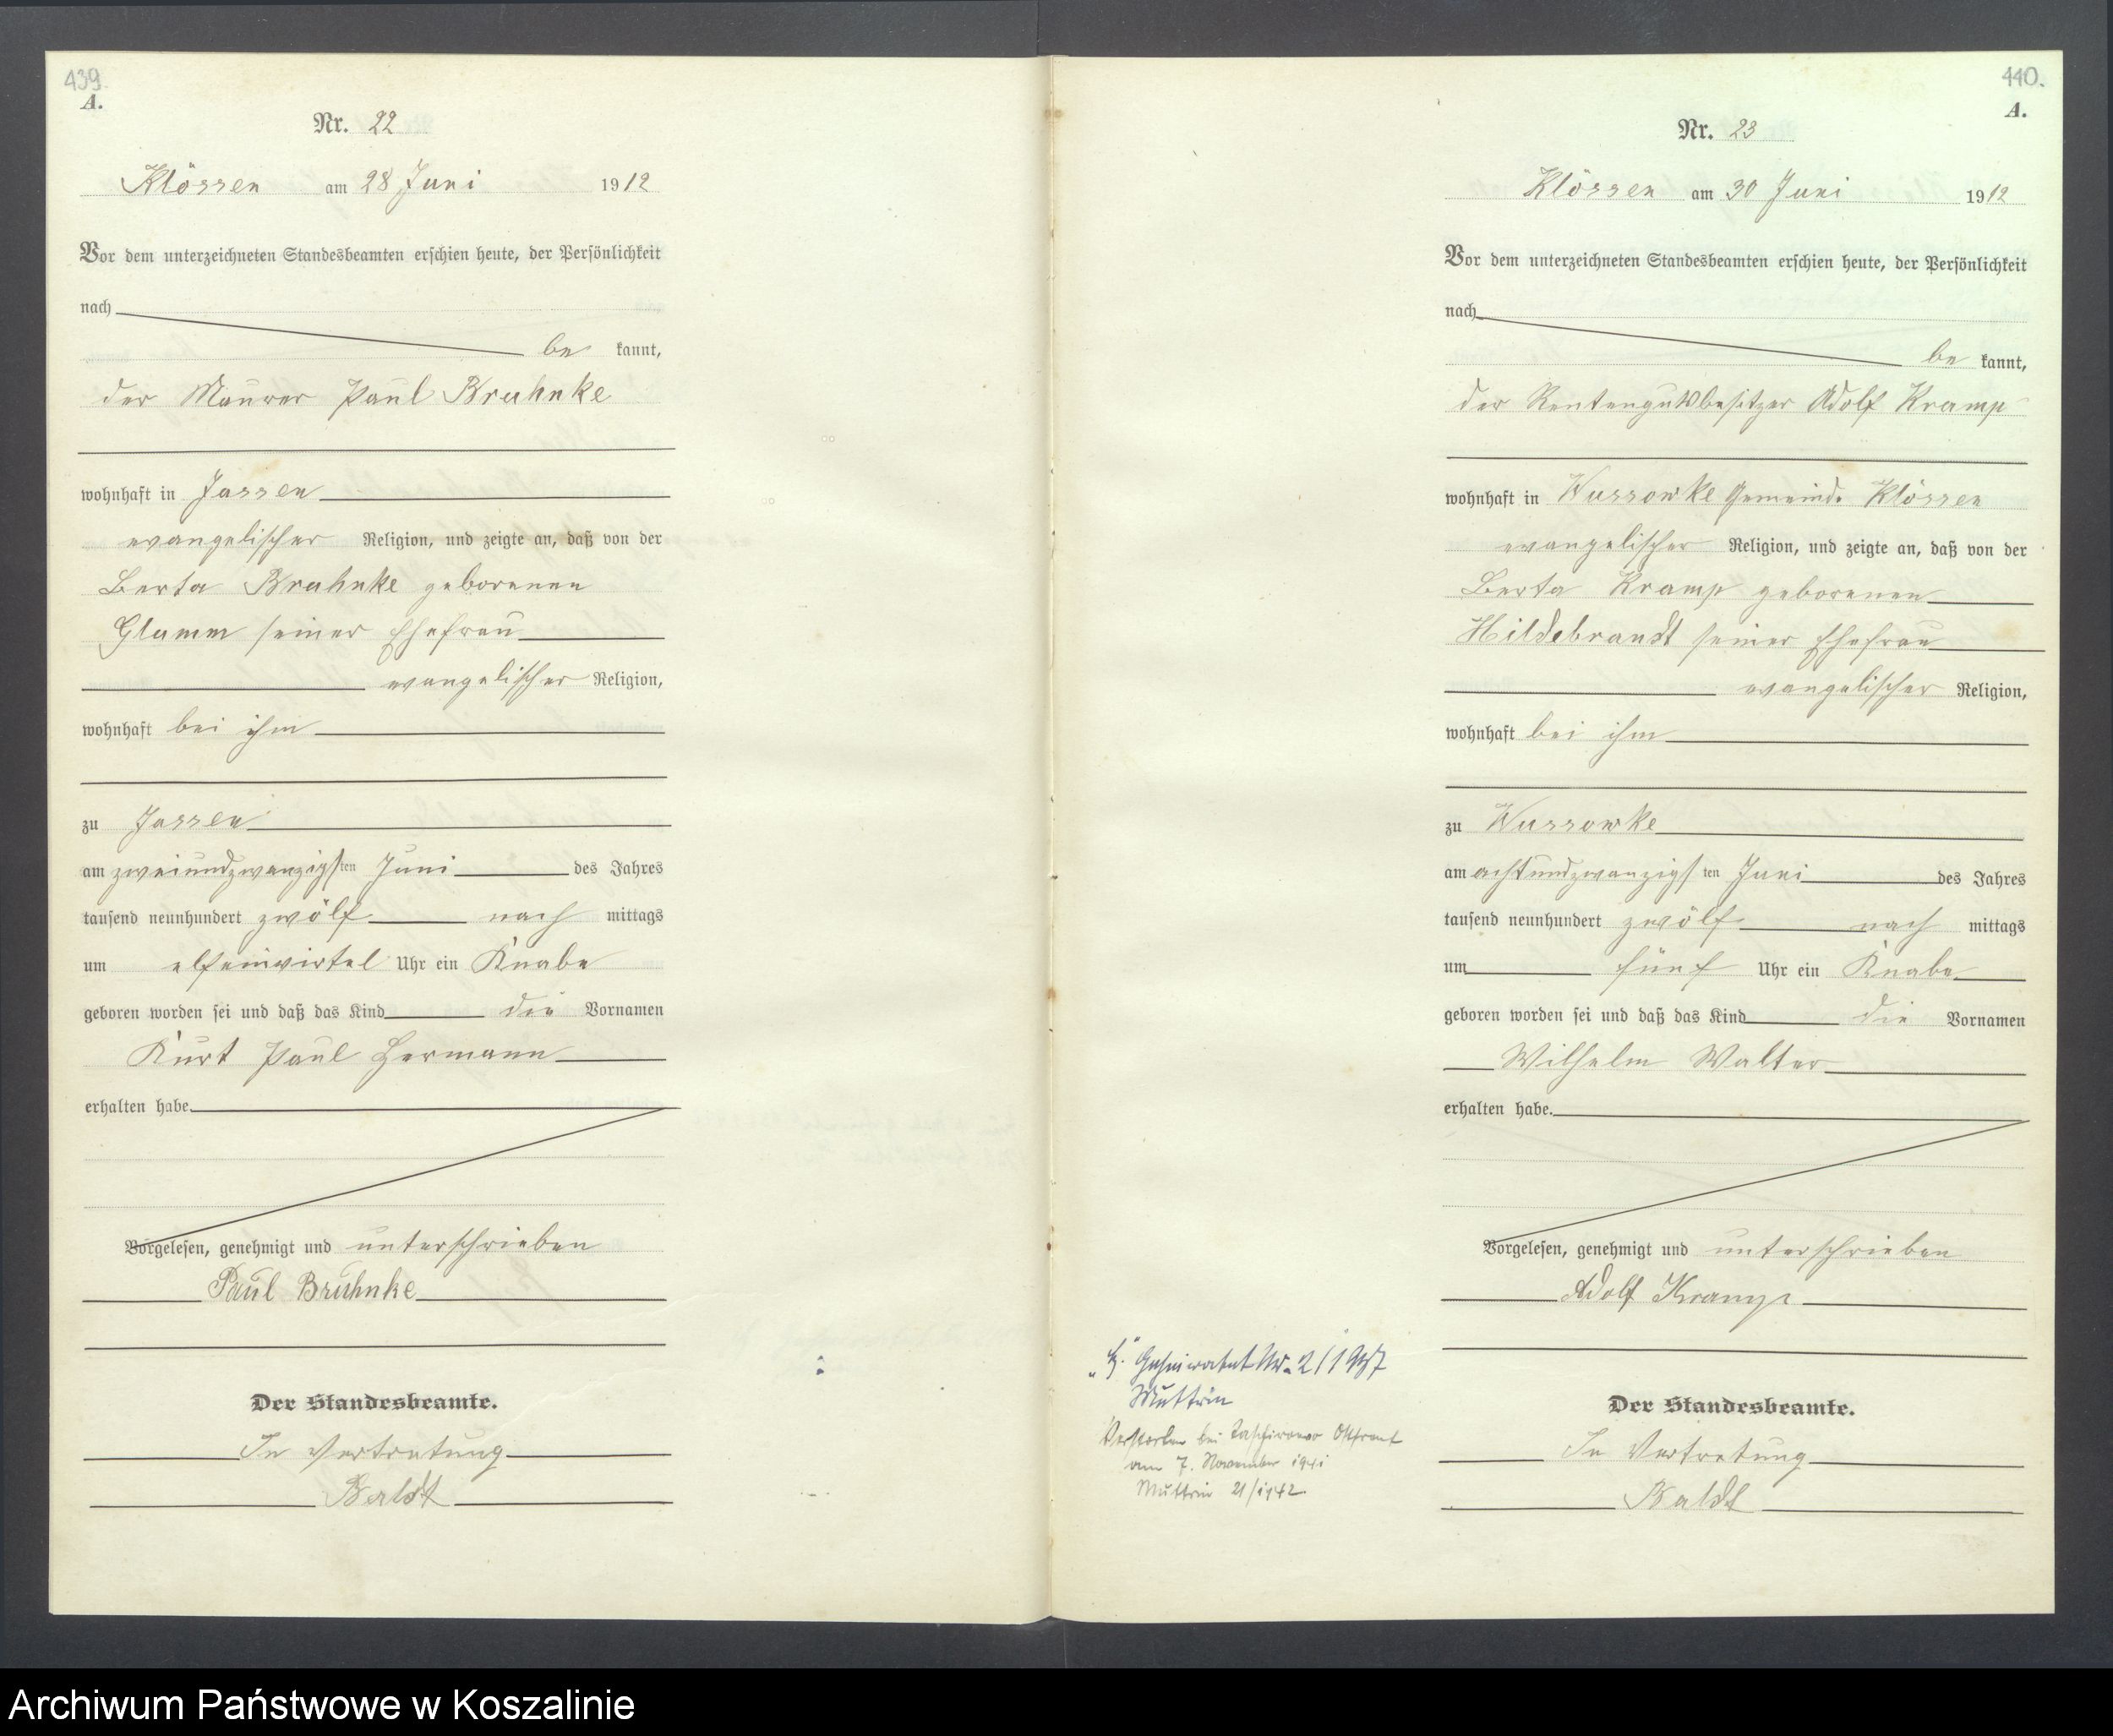 439.
A.
Nr. 22
Klössen am 28 Juni 1912
Vor dem unterzeichneten Standesbeamten erschien heute, der Persönlichkeit
nach
be kannt,
der Maurer Paul Bruhnke
wohnhaft in Jassen
evangelischer Religion, und zeigte an, daß von der
Berta Bruhnke geborenen
Glamm seiner Ehefrau
evangelischer Religion,
wohnhaft bei ihm
zu Jassen
am zweiundzwanzigsten Juni des Jahres
tausend neunhundert zwölf nach mittags
um elfeinviertel Uhr ein Knabe
geboren worden sei und daß das Kind die Vornamen
Kurt Paul Hermann
erhalten habe.
Vorgelesen, genehmigt und unterschrieben
Paul Bruhnke
Der Standesbeamte.
In Vertretung
Baldt
440.
A.
Nr. 23
Klössen am 30 Juni 1912
Vor dem unterzeichneten Standesbeamten erschien heute, der Persönlichkeit
nach
be kannt,
der Rentengutsbesitzer Adolf Kramp
wohnhaft in Wussowke Gemeinde Klössen
evangelischer Religion, und zeigte an, daß von der
Berta Kramp geborenen
Hildebrandt seiner Ehefrau
evangelischer Religion,
wohnhaft bei ihm
zu Wussowke
am achtundzwanzigsten Juni des Jahres
tausend neunhundert zwölf nach mittags
um fünf Uhr ein Knabe
geboren worden sei und daß das Kind die Vornamen
Wilhelm Walter
erhalten habe.
Vorgelesen, genehmigt und unterschrieben
Adolf Kramp
Der Standesbeamte.
In Vertretung
Baldt
Geheiratet Nr. 2/1937
Muttrin
Verstorben bei Ostfront
am 7. November 1941
Muttrin 21/1942
Archiwum Państwowe w Koszalinie